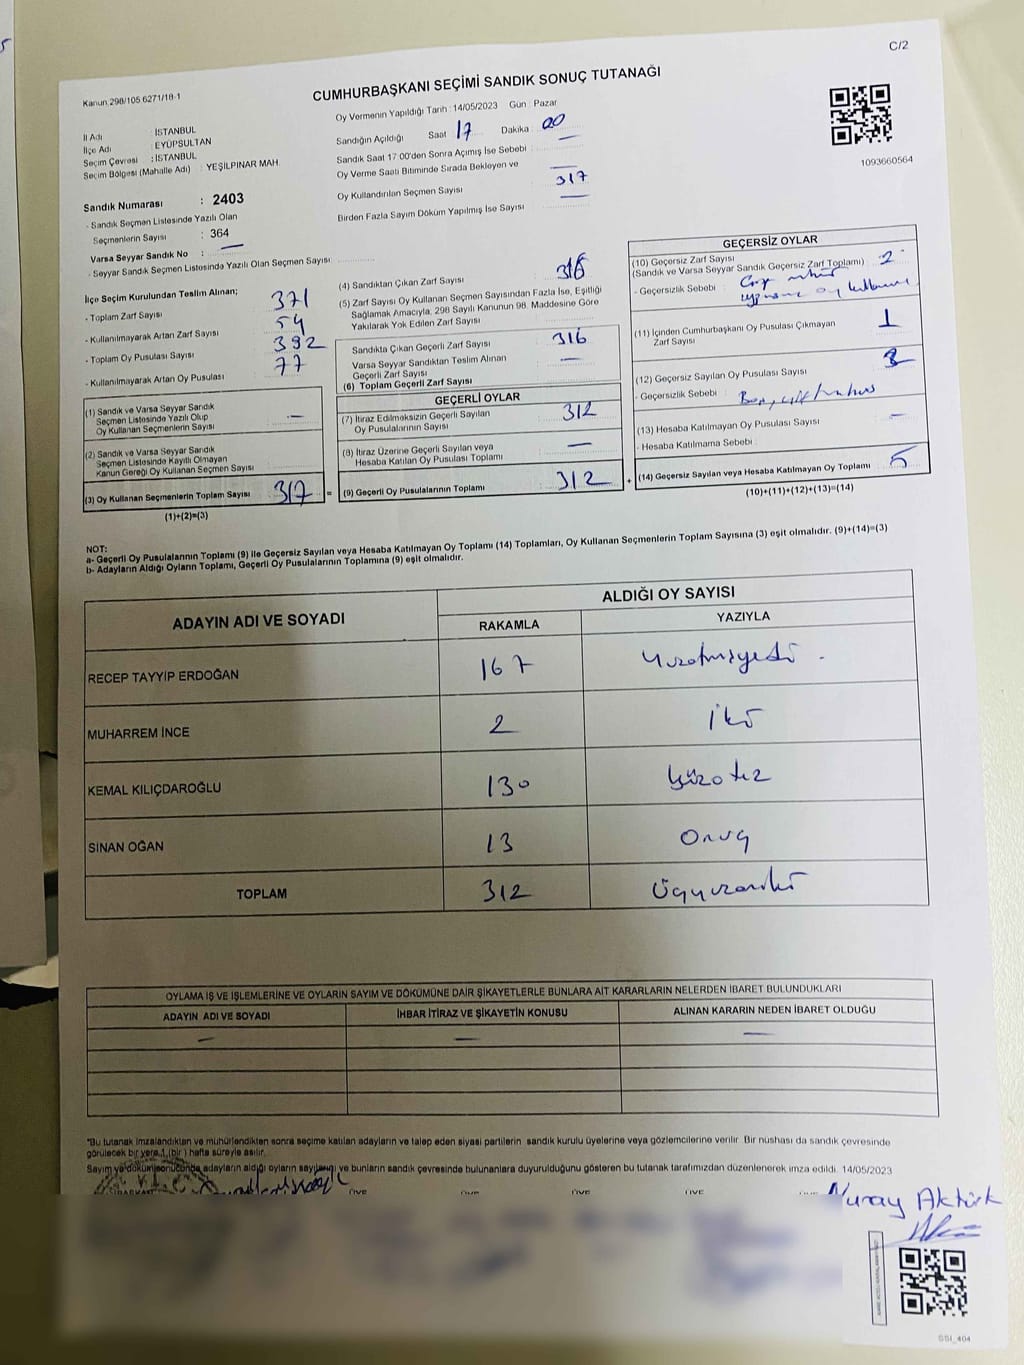 C/2
Kanun 298/105 6271/18-1
CUMHURBAŞKANI SEÇİMİ SANDIK SONUÇ TUTANAĞI
İl Adı : İSTANBUL
İlçe Adı : EYÜPSULTAN
Seçim Çevresi : İSTANBUL
Seçim Bölgesi (Mahalle Adı) : YEŞİLPINAR MAH.
Sandık Numarası : 2403
- Sandık Seçmen Listesinde Yazılı Olan
Seçmenlerin Sayısı : 364
Varsa Seyyar Sandık No : —
- Seyyar Sandık Seçmen Listesinde Yazılı Olan Seçmen Sayısı :
Oy Vermenin Yapıldığı Tarih : 14/05/2023 Gün : Pazar
Sandığın Açıldığı Saat 17 Dakika : 00
Sandık Saat 17:00'den Sonra Açımış İse Sebebi : —
Oy Verme Saati Bitiminde Sırada Bekleyen ve
Oy Kullandırılan Seçmen Sayısı 317
Birden Fazla Sayım Döküm Yapılmış İse Sayısı —
1093660564
İlçe Seçim Kurulundan Teslim Alınan;
- Toplam Zarf Sayısı 371
- Kullanılmayarak Artan Zarf Sayısı 54
- Toplam Oy Pusulası Sayısı 392
- Kullanılmayarak Artan Oy Pusulası 77
(1) Sandık ve Varsa Seyyar Sandık
Seçmen Listesinde Yazılı Olup
Oy Kullanan Seçmenlerin Sayısı —
(2) Sandık ve Varsa Seyyar Sandık
Seçmen Listesinde Kayıtlı Olmayan
Kanun Gereği Oy Kullanan Seçmen Sayısı
(3) Oy Kullanan Seçmenlerin Toplam Sayısı 317 =
(1)+(2)=(3)
(4) Sandıktan Çıkan Zarf Sayısı 316
(5) Zarf Sayısı Oy Kullanan Seçmen Sayısından Fazla İse, Eşitliği
Sağlamak Amacıyla, 298 Sayılı Kanunun 98. Maddesine Göre
Yakılarak Yok Edilen Zarf Sayısı
Sandıkta Çıkan Geçerli Zarf Sayısı 316
Varsa Seyyar Sandıktan Teslim Alınan
Geçerli Zarf Sayısı —
(6) Toplam Geçerli Zarf Sayısı
GEÇERLİ OYLAR
(7) İtiraz Edilmeksizin Geçerli Sayılan
Oy Pusulalarının Sayısı 312
(8) İtiraz Üzerine Geçerli Sayılan veya
Hesaba Katılan Oy Pusulası Toplamı —
(9) Geçerli Oy Pusulalarının Toplamı 312 +
GEÇERSİZ OYLAR
(10) Geçersiz Zarf Sayısı
(Sandık ve Varsa Seyyar Sandık Geçersiz Zarf Toplamı) 2
- Geçersizlik Sebebi :
(11) İçinden Cumhurbaşkanı Oy Pusulası Çıkmayan
Zarf Sayısı 1
(12) Geçersiz Sayılan Oy Pusulası Sayısı
- Geçersizlik Sebebi :
(13) Hesaba Katılmayan Oy Pusulası Sayısı —
- Hesaba Katılmama Sebebi :
(14) Geçersiz Sayılan veya Hesaba Katılmayan Oy Toplamı 5
(10)+(11)+(12)+(13)=(14)
NOT:
a- Geçerli Oy Pusulalarının Toplamı (9) ile Geçersiz Sayılan veya Hesaba Katılmayan Oy Toplamı (14) Toplamları, Oy Kullanan Seçmenlerin Toplam Sayısına (3) eşit olmalıdır. (9)+(14)=(3)
b- Adayların Aldığı Oyların Toplamı, Geçerli Oy Pusulalarının Toplamına (9) eşit olmalıdır.
ADAYIN ADI VE SOYADI ALDIĞI OY SAYISI
RAKAMLA YAZIYLA
RECEP TAYYİP ERDOĞAN 167
MUHARREM İNCE 2 iki
KEMAL KILIÇDAROĞLU 130 yüzotuz
SİNAN OĞAN 13 onüç
TOPLAM 312 üçyüzoniki
OYLAMA İŞ VE İŞLEMLERİNE VE OYLARIN SAYIM VE DÖKÜMÜNE DAİR ŞİKAYETLERLE BUNLARA AİT KARARLARIN NELERDEN İBARET BULUNDUKLARI
ADAYIN ADI VE SOYADI İHBAR İTİRAZ VE ŞİKAYETİN KONUSU ALINAN KARARIN NEDEN İBARET OLDUĞU
— — —
"Bu tutanak imzalandıktan ve mühürlendikten sonra seçime katılan adayların ve talep eden siyasi partilerin sandık kurulu üyelerine veya gözlemcilerine verilir. Bir nüshası da sandık çevresinde
görülecek bir yere 1 (bir) hafta süreyle asılır.
Sayım ve dökümü sonucunda adayların aldığı oyların sayılarını ve bunların sandık çevresinde bulunanlara duyurulduğunu gösteren bu tutanak tarafımızdan düzenlenerek imza edildi. 14/05/2023
Nuray Aktürk
SSI_404